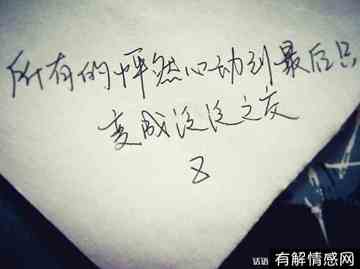 所有的怦然心动到最后只
变成泛泛之交
话话
有解情感网